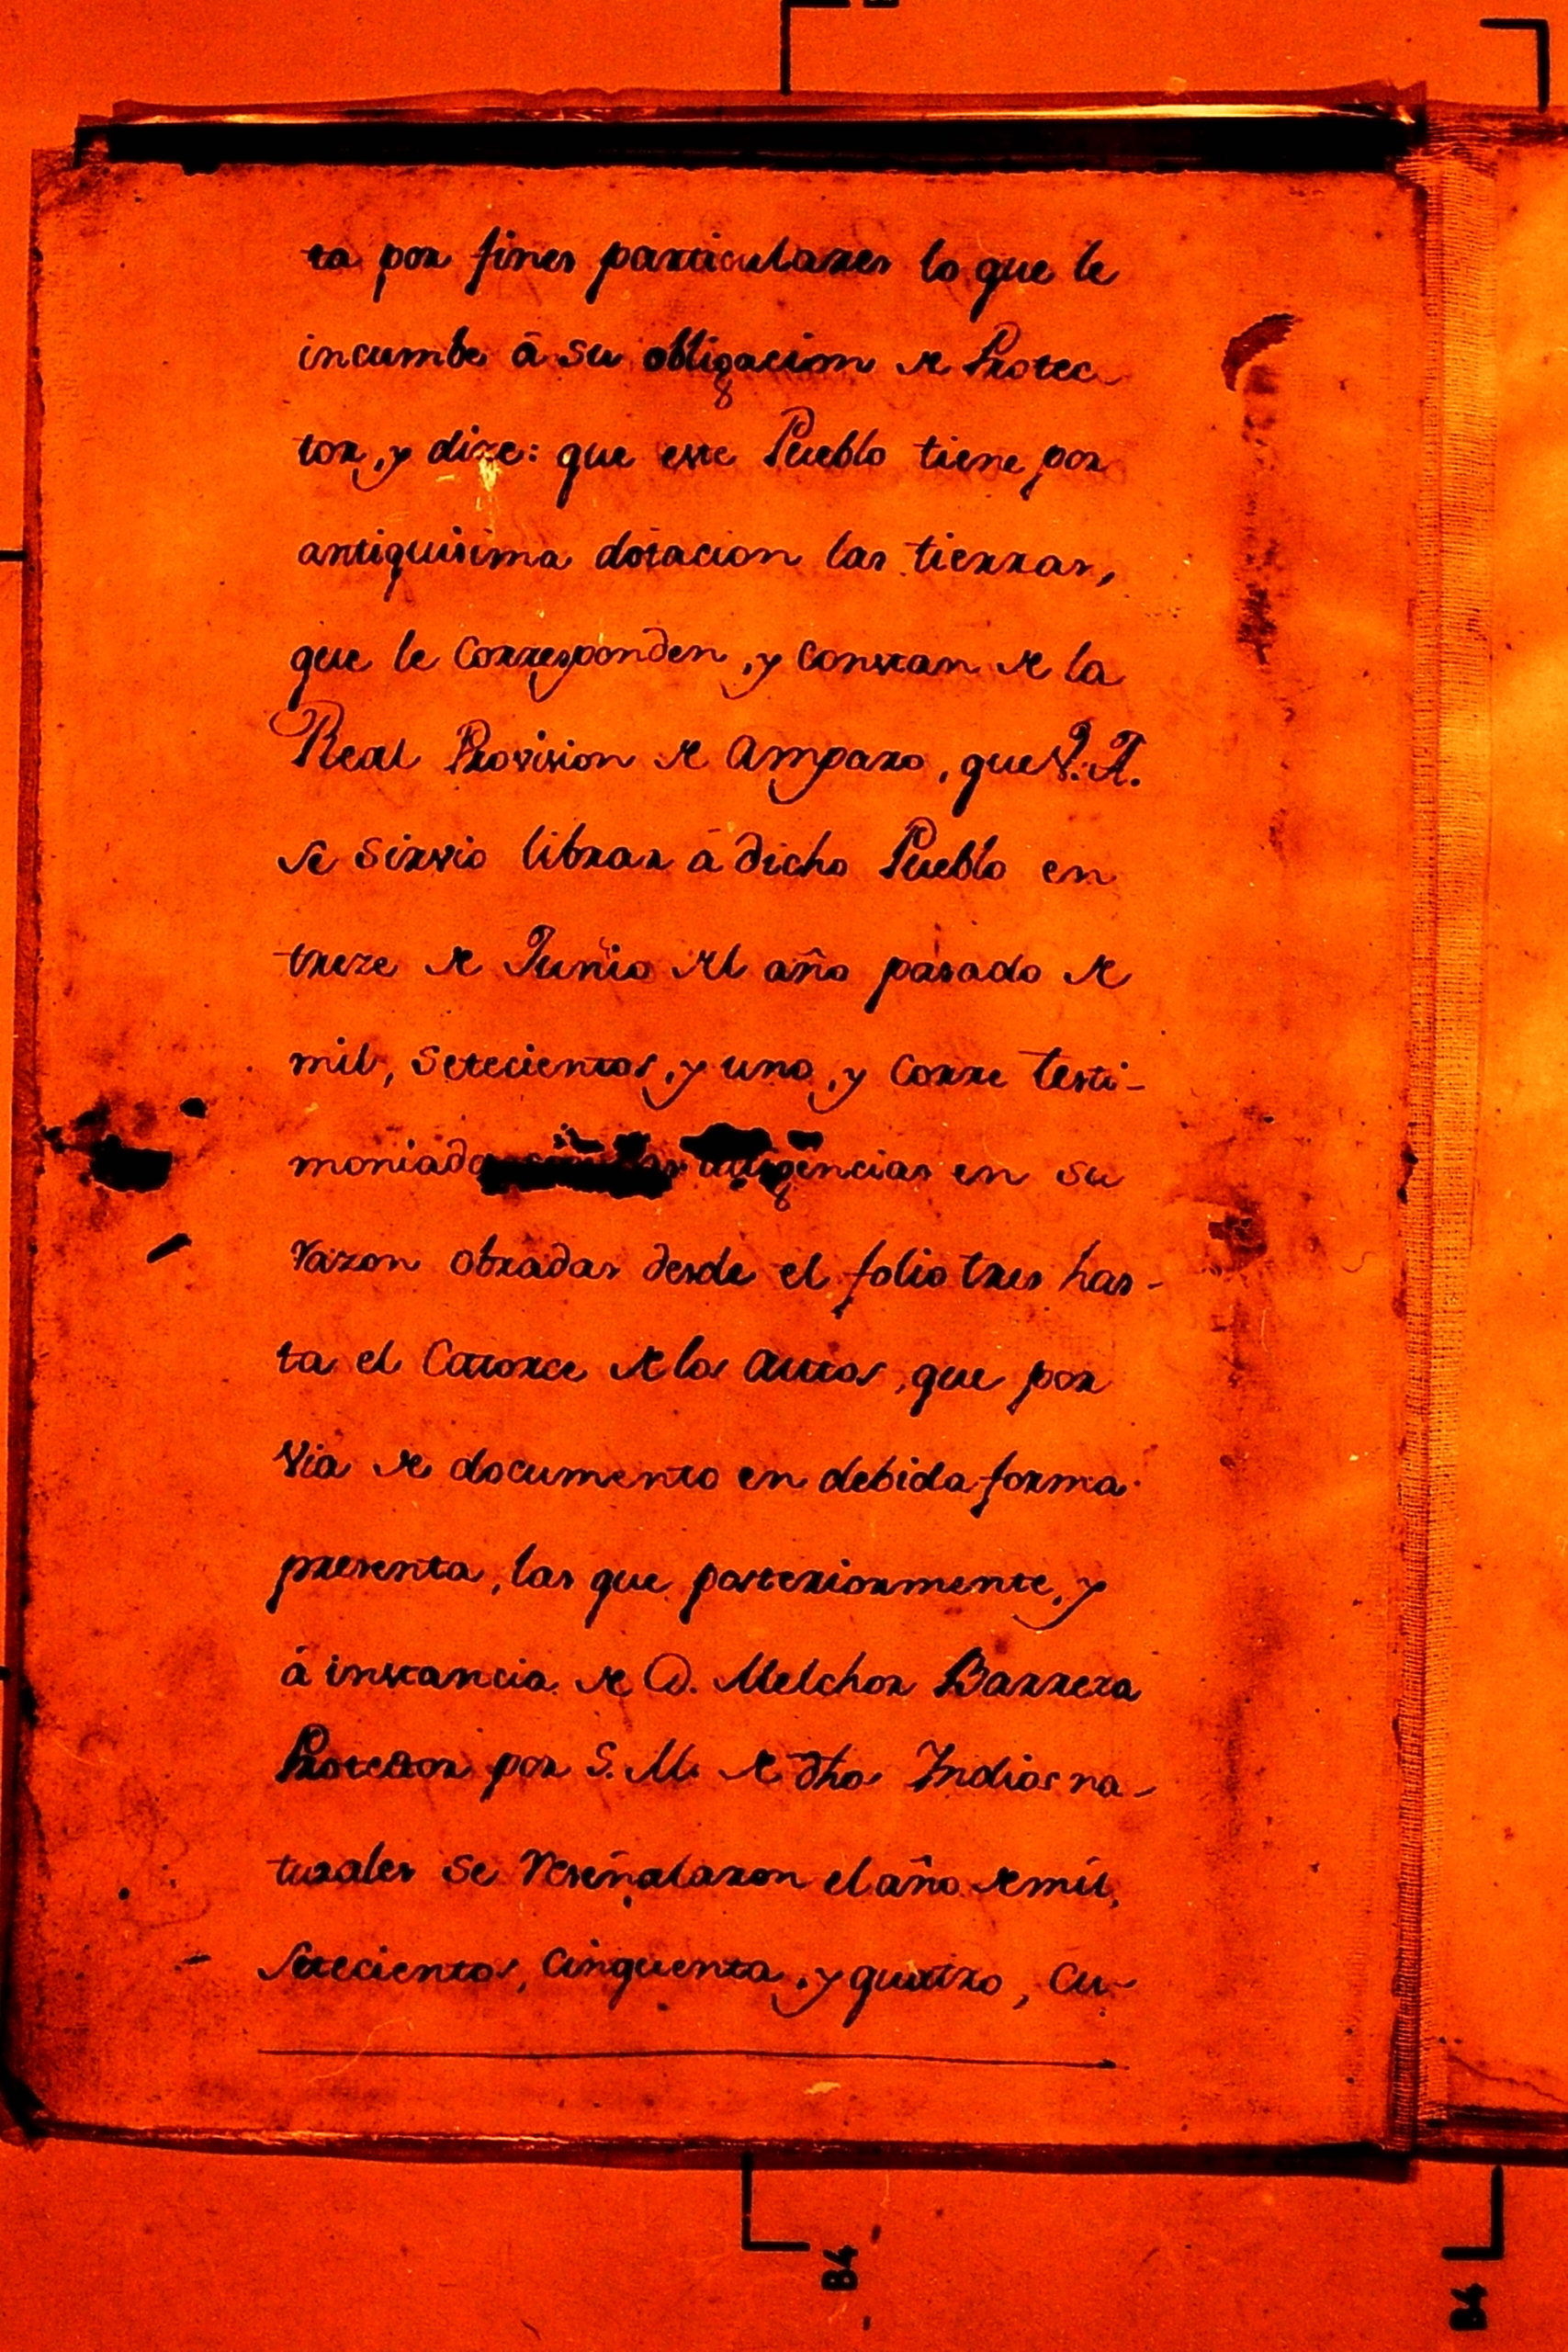 ta por fines particulares lo que le
incumbe â su obligacion de Protec
tor, y dize: que este Pueblo tiene por
antiquisima dotacion las tierras,
que le corresponden, y constan de la
Real Provision de amparo, que V. A.
se sirvio librar á dicho Pueblo en
treze de Junio del año pasado de
mil, setecientos, y uno, y corre testi-
moniada diligencias en su
razon obradas desde el folio tres has-
ta el catorce de los autos, que por
via de documento en debida forma
presenta, las que posteriormente, y
á instancia de D. Melchor Barrera
Protector por S. M. de dhos Indios na-
turales se reseñalaron el año de mil,
setecientos, cinquenta, y quatro, cu-
B4
B4